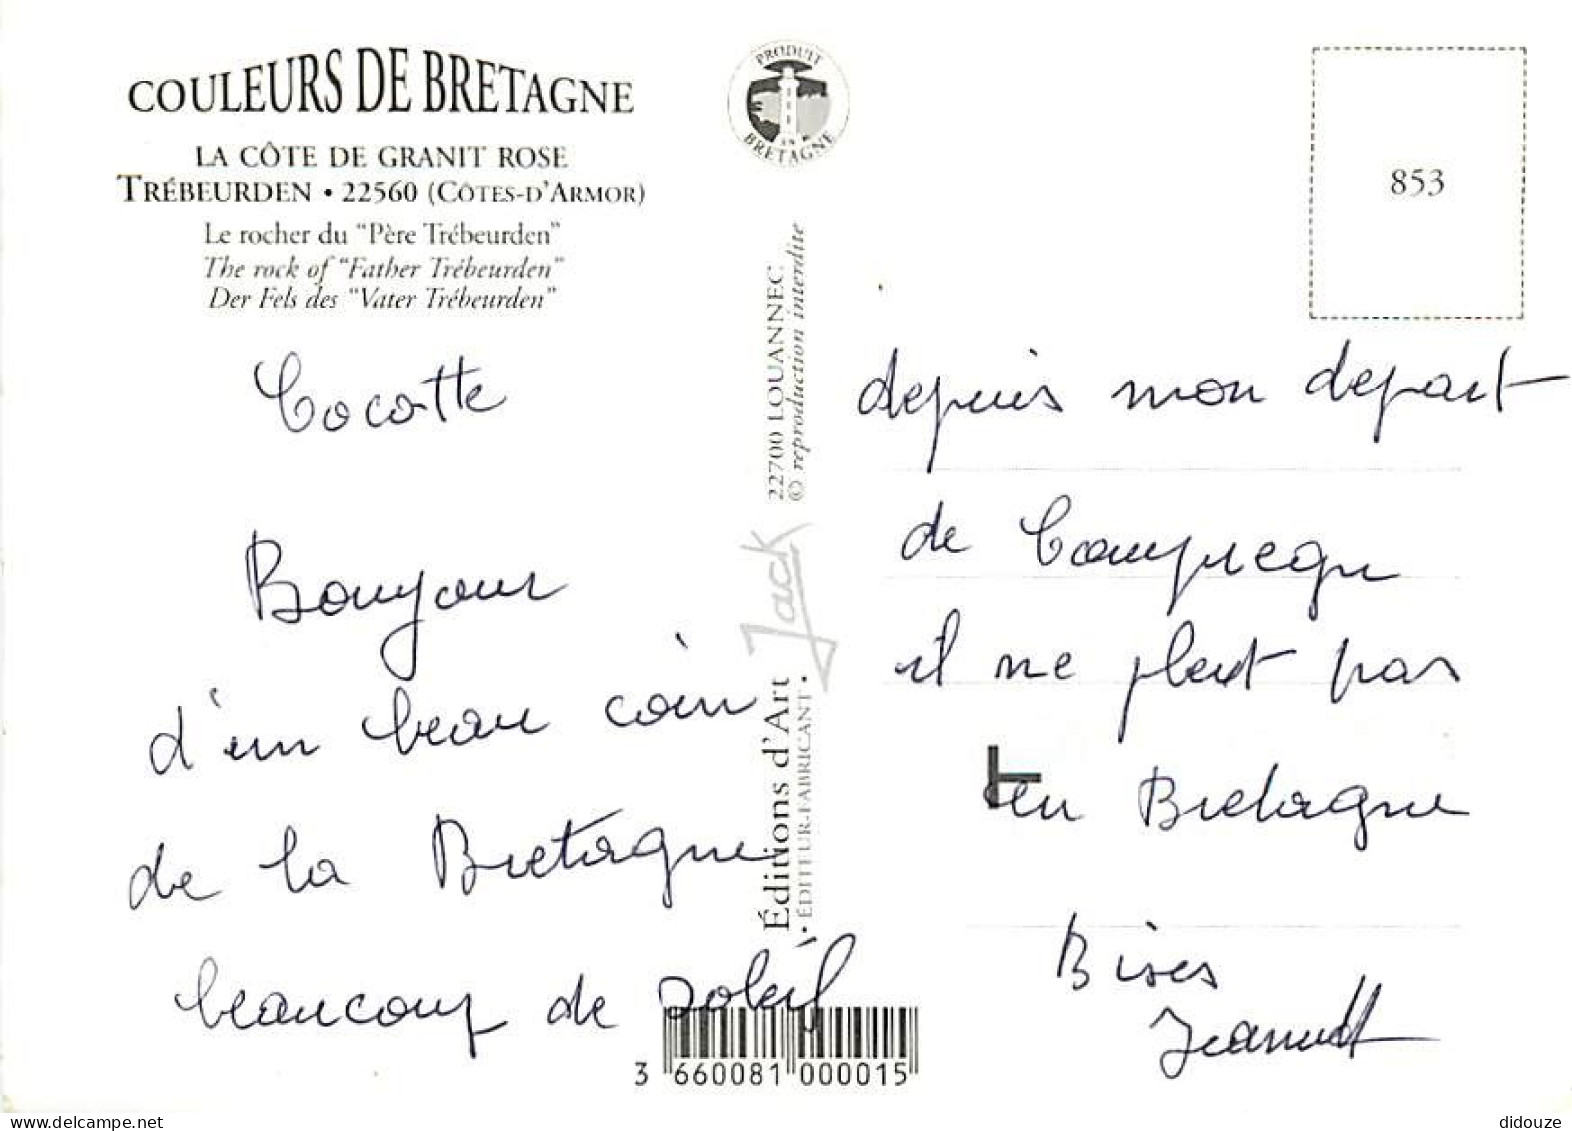 COULEURS DE BRETAGNE
LA CÔTE DE GRANIT ROSE
TRÉBEURDEN • 22560 (CÔTES-D'ARMOR)
Le rocher du "Père Trébeurden"
The rock of "Father Trébeurden"
Der Fels des "Vater Trébeurden"
PRODUIT
EN
BRETAGNE
853
Cocotte
Bonjour
d'un beau coin
de la Bretagne
beaucoup de soleil
22700 LOUANNEC
© reproduction interdite
Jack
Éditions d'Art
• ÉDITEUR-FABRICANT •
3 660081 000015
depuis mon depart
de
il ne pleut pas
en Bretagne
Bises
didouze